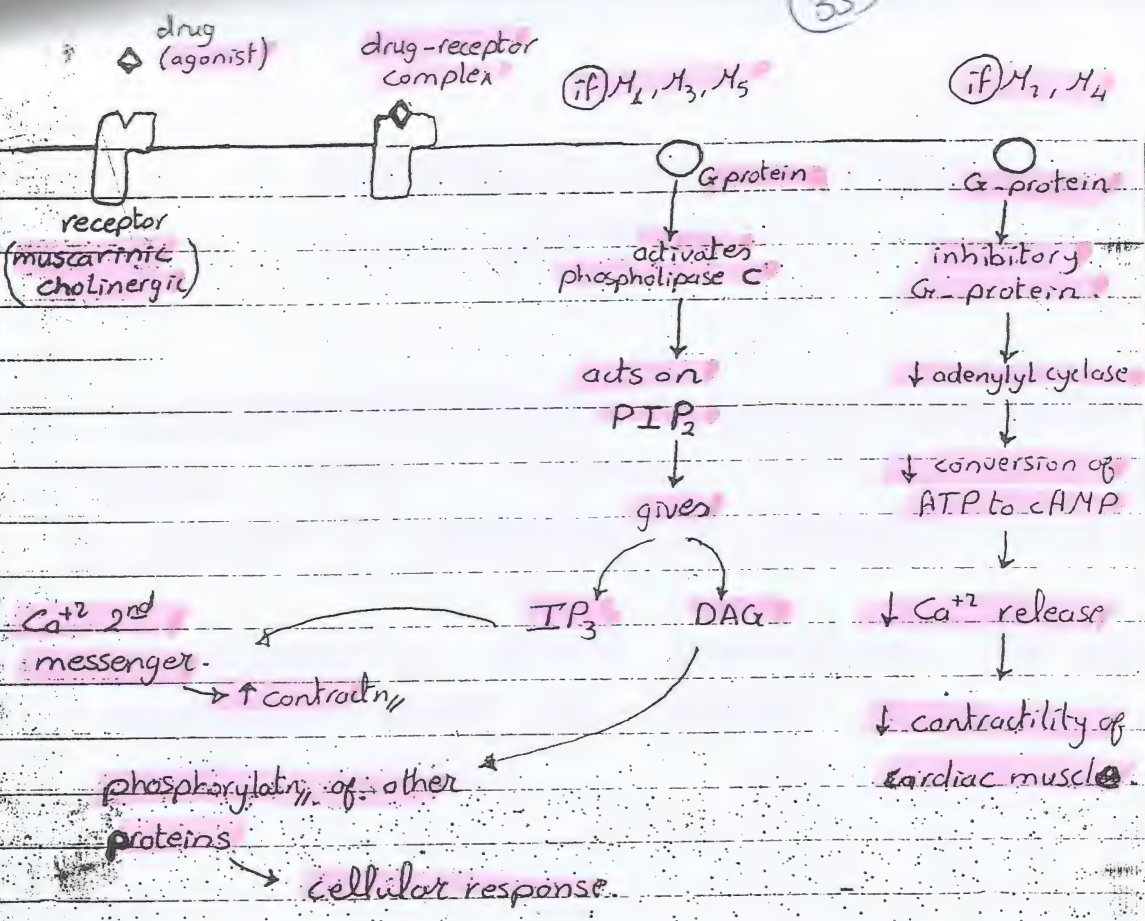 33
drug
(agonist)
drug-receptor
complex
(if) M1, M3, M5
(if) M2, M4
receptor
(muscarinic
cholinergic)
G protein
activates
phospholipase C
acts on
PIP2
gives
IP3
DAG
Ca+2 2nd
messenger.
↑ contractn,,
phosphorylatn,, of other
proteins
cellular response.
G-protein
inhibitory
G-protein.
↓ adenylyl cyclase
↓ conversion of
ATP to cAMP
↓ Ca+2 release
↓ contractility of
cardiac muscle.